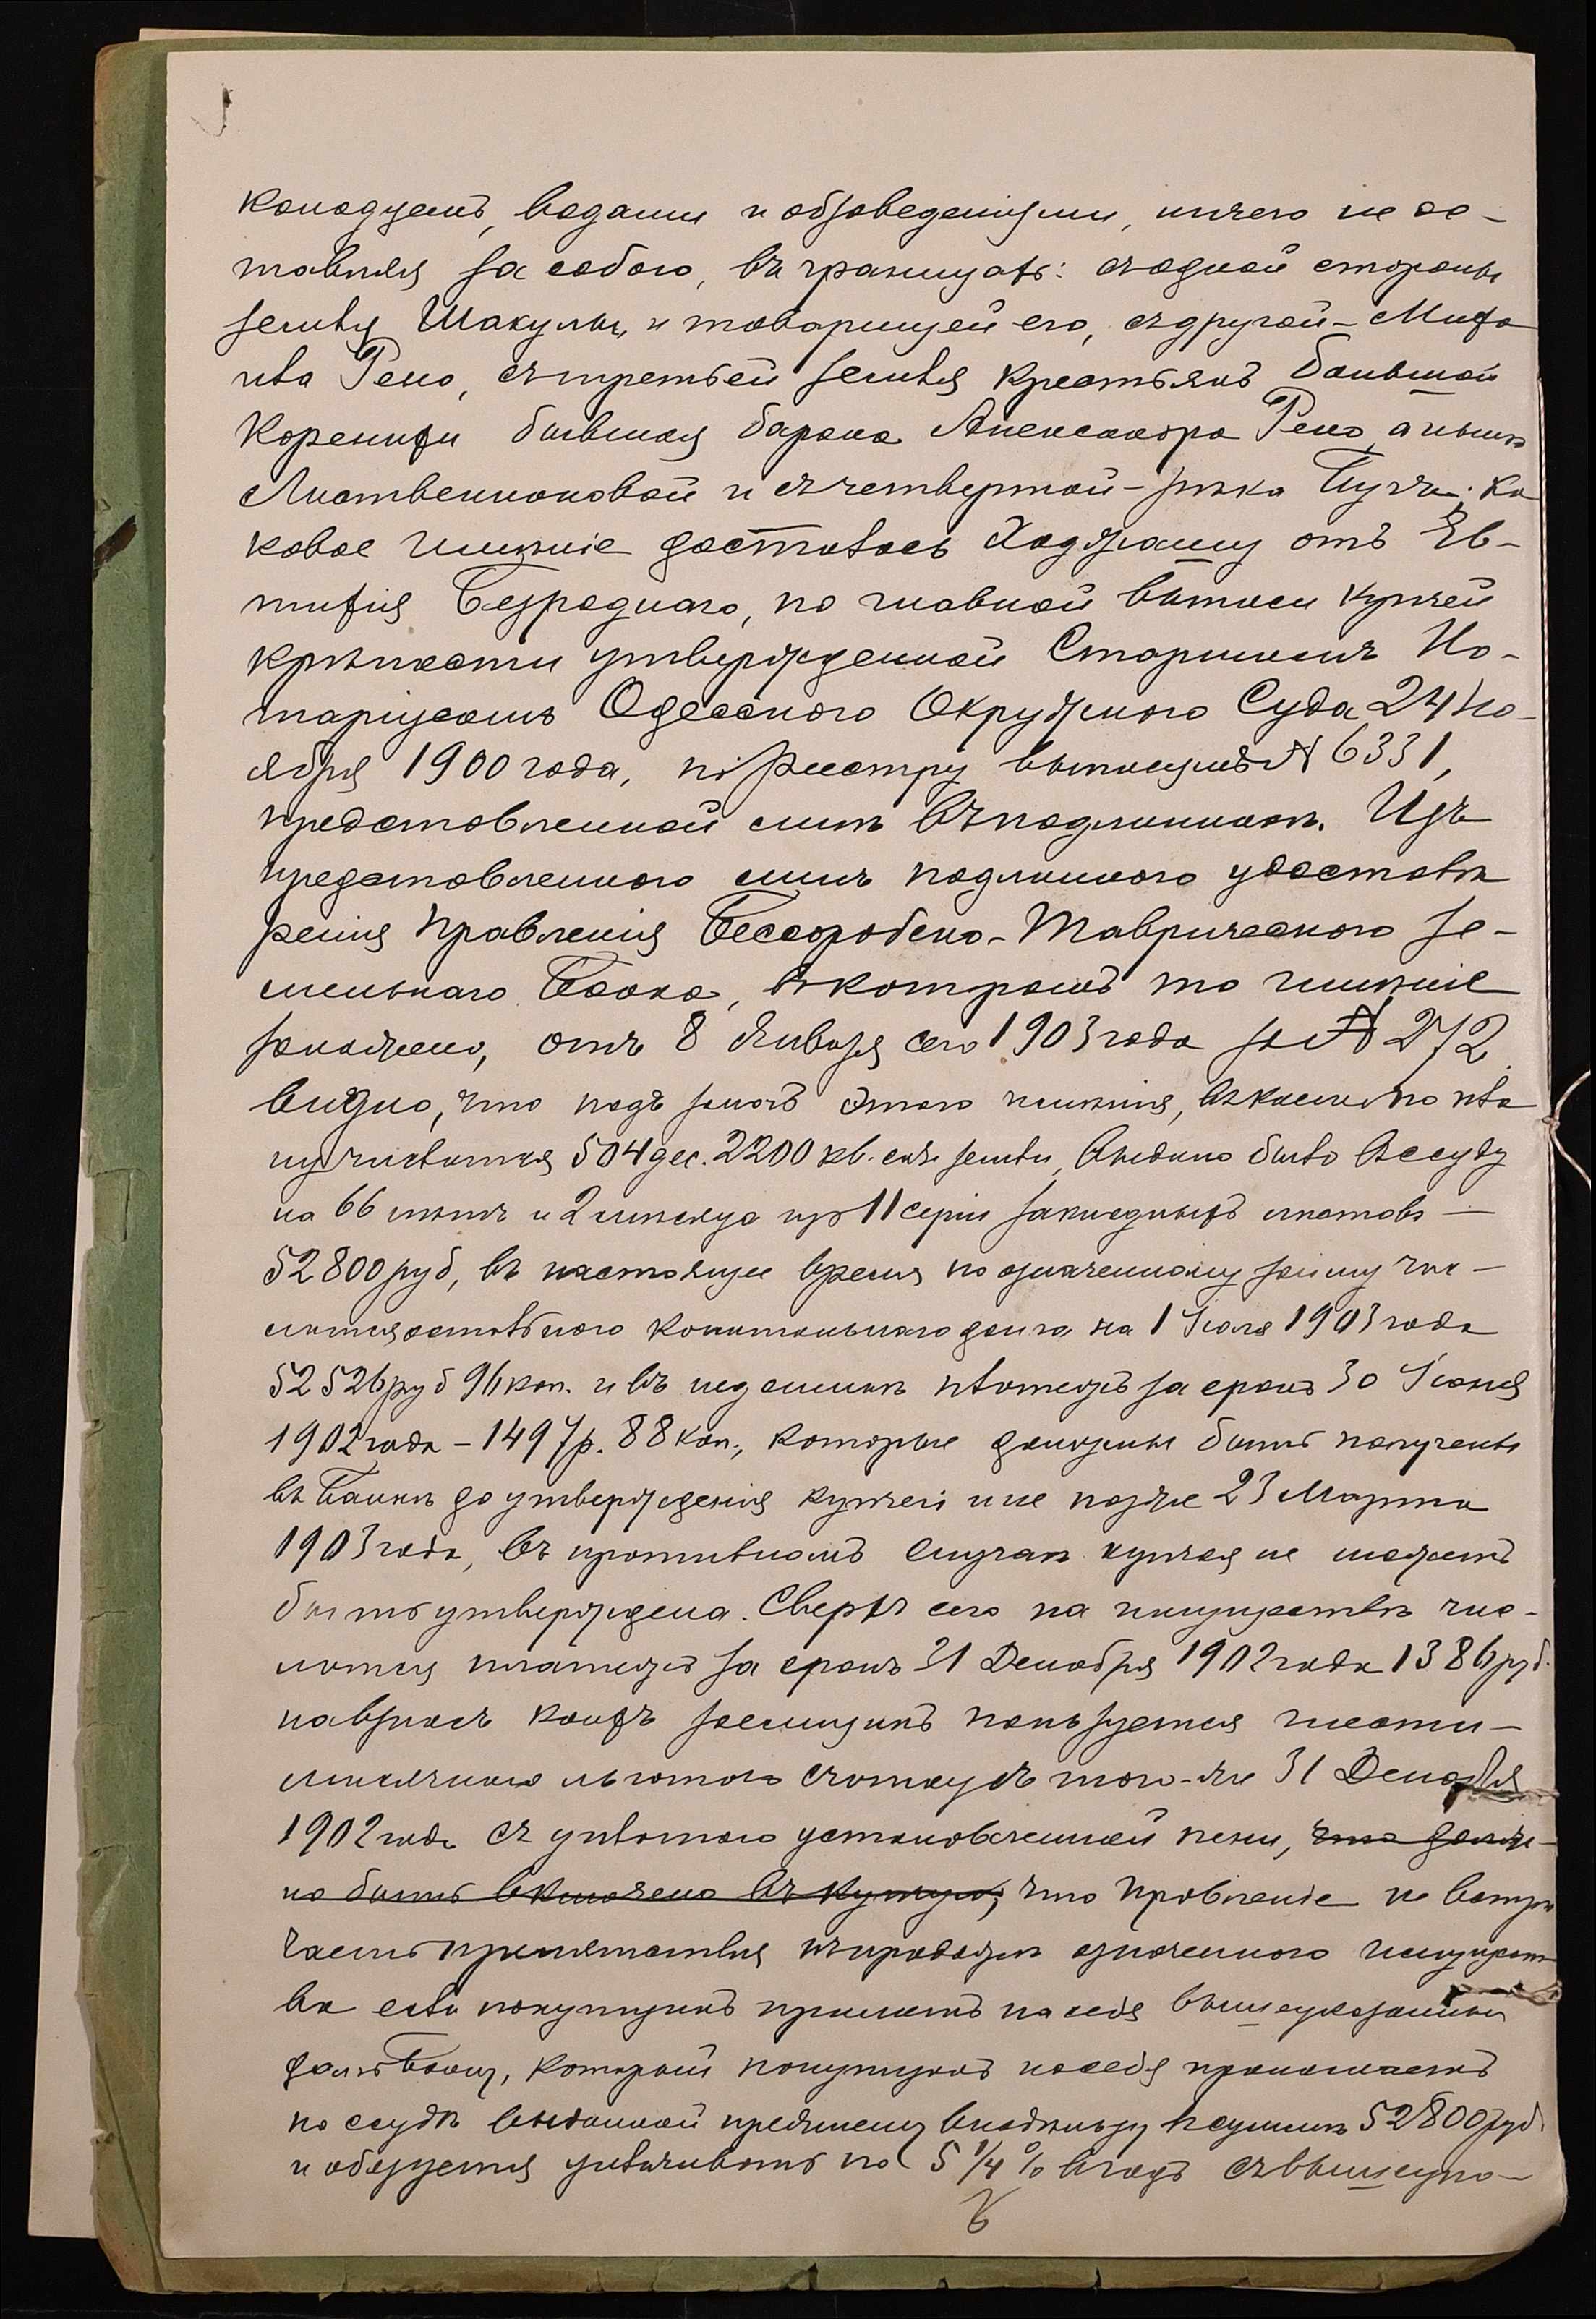 колодцемъ, водами и обзаведеніями, ничего не ос-
тавляя за собою, въ границахъ: съ одной стороны
земля Шакулы и товарищей его, съ другой - Миха
ила Рено, съ третьей земля крестьянъ Большой
Коренихи бывшая барона Александра Рено, а нынѣ
Листвениковой и съ четвертой - рѣка Бугъ; ка
ковое имѣніе досталось Ходжашу отъ Ев-
тифія Безроднаго, по главной выписи купчей
крѣпости утвержденной Старшимъ Но-
таріусомъ Одесскаго Окружнаго Суда 24 Но-
ября 1900 года, по реестру выписей № 6331,
представленной симъ въ подлинникѣ. Изъ
представленнаго симъ подлиннаго удостовѣ
ренія Правленія Бессарабско-Таврическаго Зе-
мельнаго Банка, въ которомъ то имѣніе
заложено, отъ 8 Января сего 1903 года за № 272
видно, что подъ залогъ этого имѣнія, въ коемъ по пла
ну числится 504 дес. 2200 кв. саж. земли, выдано было въ ссуду
на 66 лѣтъ и 2 мѣсяца изъ 11 серіи закладныхъ листовъ —
52800 руб, въ настоящее время по означенному займу чис-
лится остальнаго капитальнаго долга на 1 Іюля 1903 года
52526 руб 96 коп. и въ недоимкѣ платежъ за срокъ 30 Іюня
1902 года - 1497 р. 88 коп., которые должны быть получены
въ Банкъ до утвержденія купчей и не позже 23 Марта
1903 года, въ противномъ случаѣ купчая не можетъ
быть утверждена. Сверхъ сего на имуществѣ чис-
лится платежъ за срокъ 31 Декабря 1902 года 1386 руб.
на взносъ коихъ заемщикъ пользуется шести-
мѣсячною льготою считая съ того-же 31 Декабря
1902 года съ уплатою установленной пени, что долж-
но быть включено въ купчую, что Правленіе не встрѣ
чаетъ препятствія къ продажѣ означеннаго имущест
ва если покупщикъ приметъ на себя вышеуказанный
долгъ Банку, который покупщикъ на себя принимаетъ
по ссудѣ выданной прежнему владѣльцу въ суммѣ 52800 руб.
и обязуется уплачивать по 5 1/4 % въ годъ съ вышеупо-